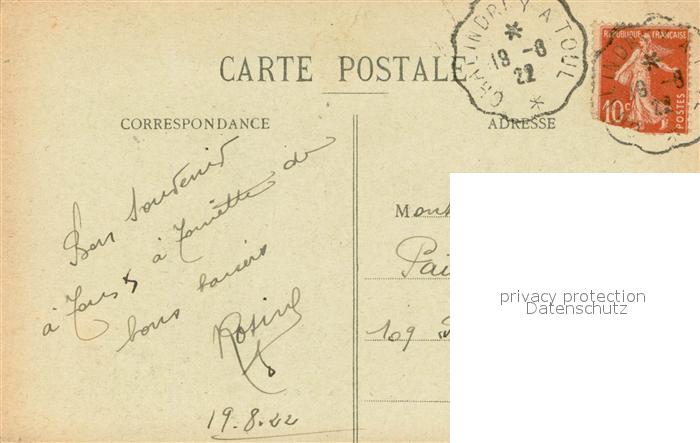 CARTE POSTALE
CHALINDREY A TOUL
19-8
22
REPUBLIQUE FRANÇAISE
10c
POSTES
CORRESPONDANCE
ADRESSE
Bon souvenir
à Tous à de
bons baisers
19.8.22
109
privacy protection
Datenschutz